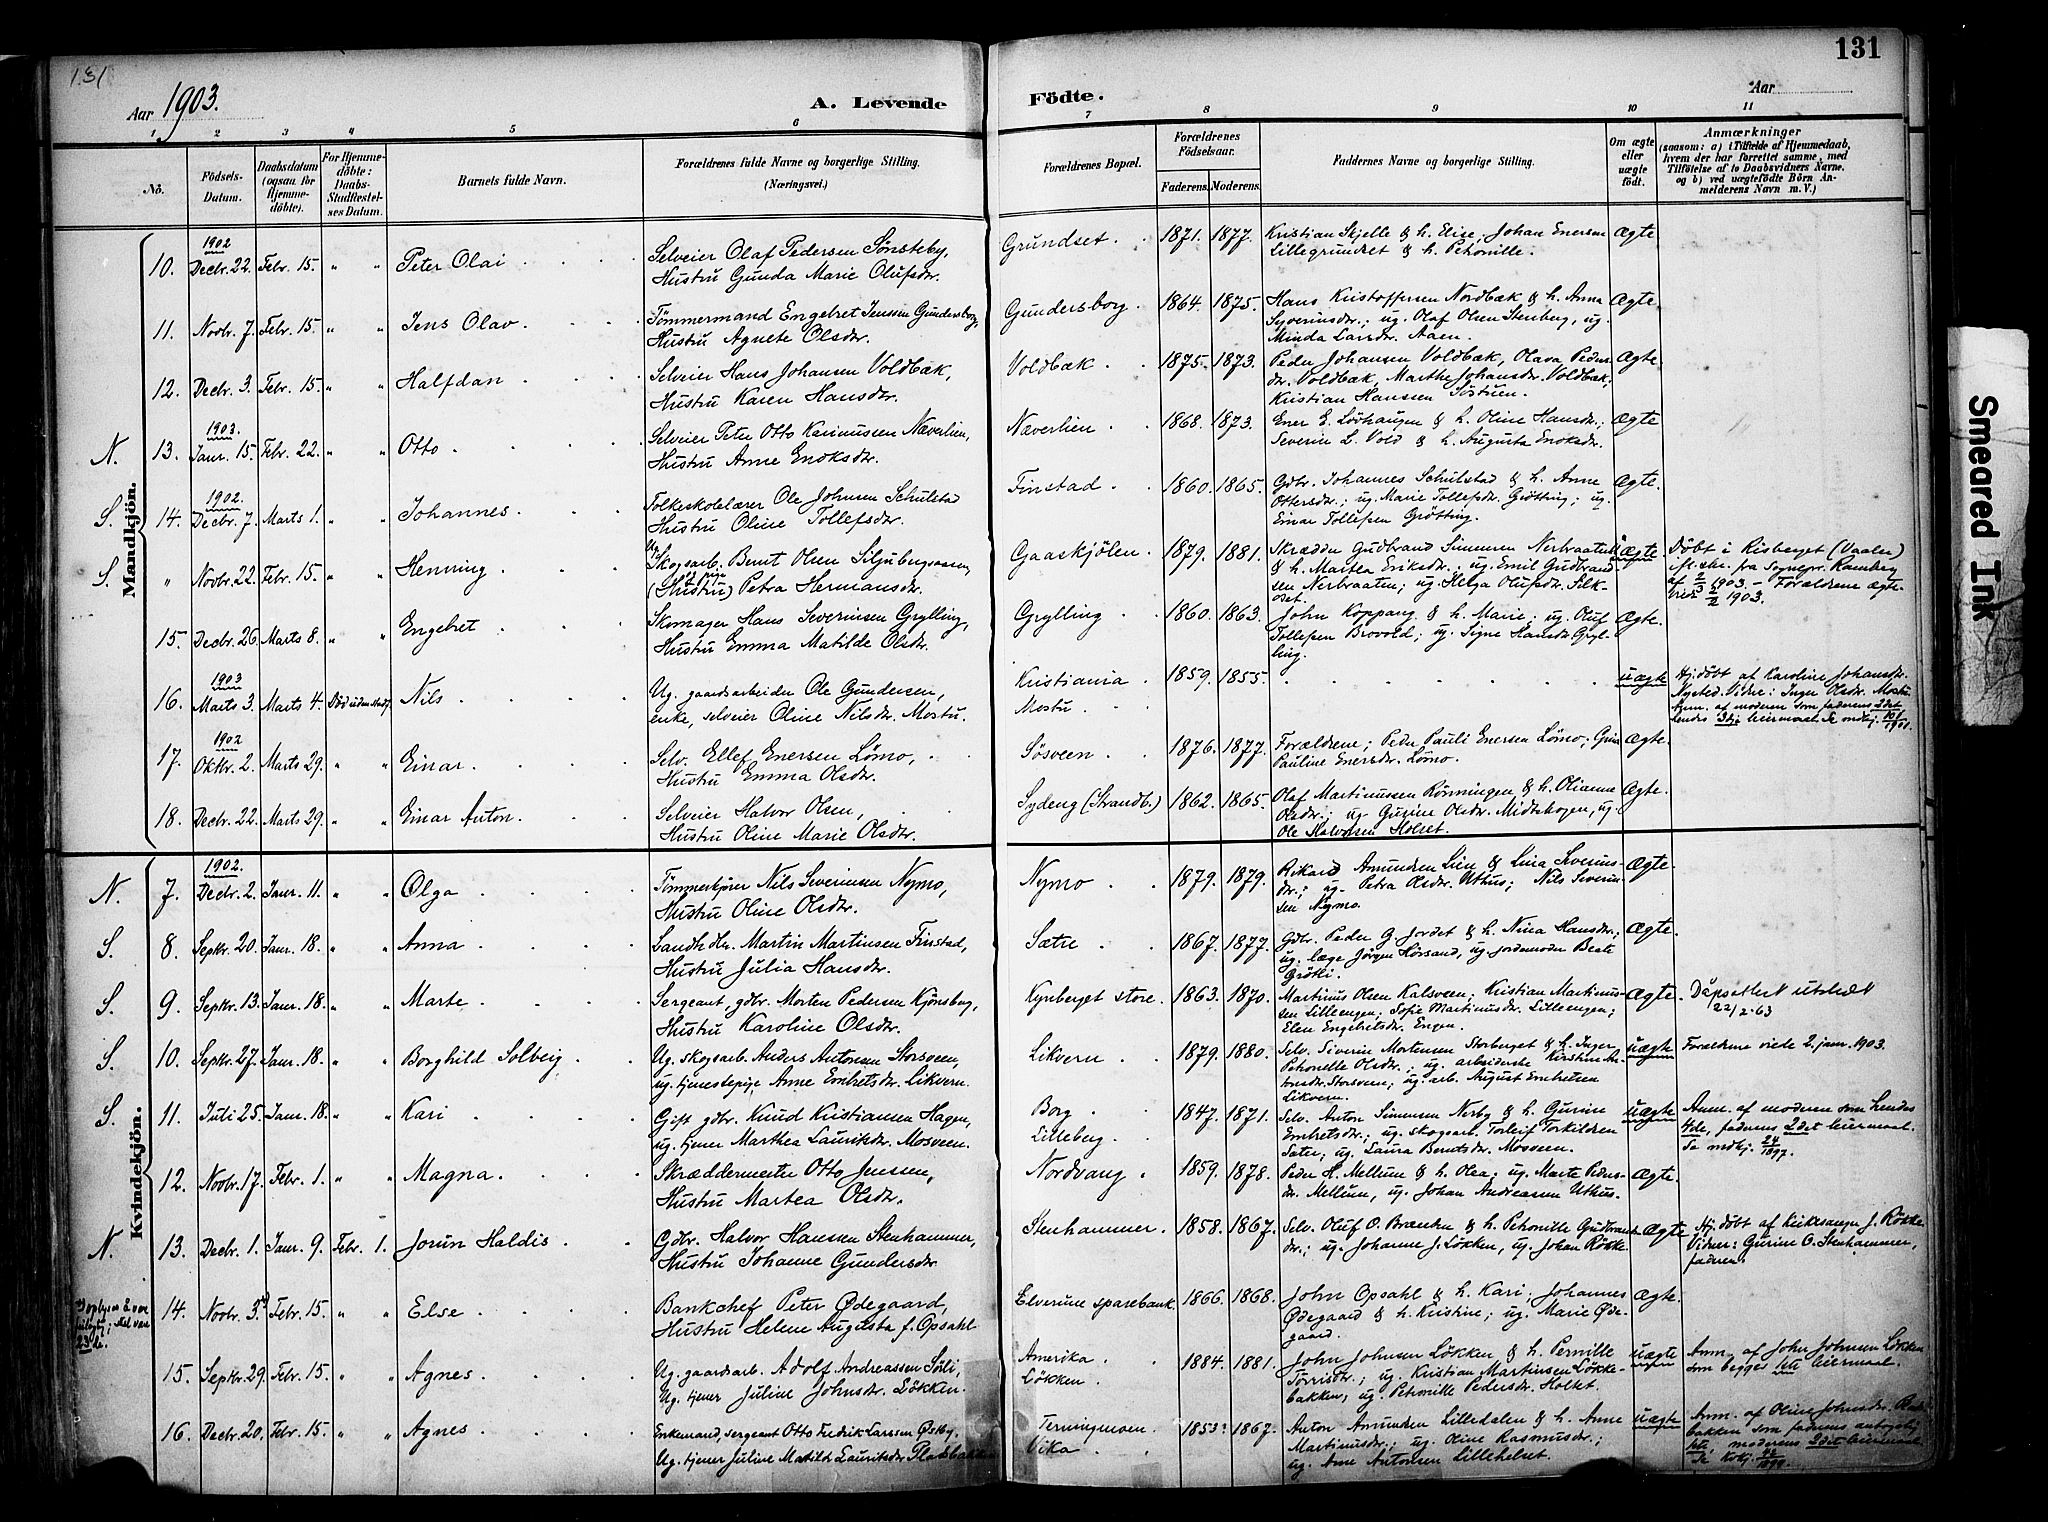 131
131
Aar 1903.
A. Levende
Födte.
Aar
1 2 3 4 5 6 7 8 9 10 11
No.
Födsels-
Datum.
Daabsdatum
(ogsaa for
Hjemme-
döbte).
For Hjemme-
döbte:
Daabs-
Stadfæstel-
ses Datum.
Barnets fulde Navn.
Forældrenes fulde Navne og borgerlige Stilling.
(Næringsvei.)
Forældrenes Bopæl.
Forældrenes
Födselsaar.
Faderens.
Moderens.
Faddernes Navne og borgerlige Stilling.
Om ægte
eller
uægte
födt.
Anmærkninger
(saasom: a) i Tilfælde af Hjemmedaab,
hvem der har forrettet samme, med
Tilföielse af to Daabsvidners Navne,
og b) ved uægtefödte Börn An-
melderens Navn m. V.)
Mandkjön.
1902
10. Decbr. 22. Febr. 15. " " Peter Olai Selveier Olaf Pedersen Sønsteby,
Hustru Gunda Marie Olufsdr.
Grundset. 1871. 1877. Kristian Skjelle & h. Elise, Johan Enersen
Lillegrundset & h. Pehonille. Ægte
11. Novbr. 7. Febr. 15. " " Jens Olav Tømmermand Engebret Jenssen Gundersborg,
Hustru Agnete Olsdr.
Gundersborg. 1864. 1875. Hans Kristoffersen Nordbæk & h. Anna
Syverinsdr.; ug. Olaf Olsen Stenberg, ug.
Minda Larsdr. Aaen. Ægte.
12. Decbr. 3. Febr. 15. " " Halfdan Selveier Hans Johansen Voldbæk,
Hustru Karen Hansdr.
Voldbæk 1875. 1873. Peder Johansen Voldbæk, Olava Peders-
dr. Voldbæk, Marthe Johansdr. Voldbæk,
Kristian Hanssen Söstuen. Ægte.
1903.
N. 13. Janr. 15. Febr. 22. " " Otto Selveier Peter Otto Karinussen Næverlien,
Hustru Anne Enoksdr.
Næverlien 1868. 1873. Ener E. Løvhaugen & h. Oline Hansdr.;
Severin L. Vold & h. Augusta Enoksdr. Ægte
1902.
S. 14. Decbr. 7. Marts 1. " " Johannes Folkeskolelærer Ole Johnsen Schulstad
Hustru Oline Tollefsdr.
Finstad 1860. 1865. Gdbr. Johannes Schulstad & h. Anne
Ottersdr.; ug. Marie Tollefsdr. Grøtting; ug.
Einar Tollefsen Grøtting. Ægte.
S. " Novbr. 22. Febr. 15. " " Henning Ug. Skogsarb. Bernt Olsen Siljubergsaasen,
(Hustru) ug. pige Petra Hermansdr.
Gaaskjølen. 1879. 1881. Skrædder Gudbrand Simensen Nerbraaten
& h. Martea Eriksdr.; ug. Emil Gudbrand-
sen Nerbraaten; ug. Helga Olufsdr. Silk-
oset. uægte Døbt i Risberget (Vaaler)
af Sognepr. Ramberg
Forældrene ægte-
viede 2/2 1903.
15. Decbr. 26. Marts 8. " " Engebret Skomager Hans Severinsen Grylling,
Hustru Emma Matilde Olsdr.
Grylling 1860. 1863. John Koppang & h. Marie; ug. Oluf
Tollefsen Brovold; ug. Signe Hansdr. Gryl-
ling. Ægte.
1903
16. Marts 3. Marts 4. Død uden stadf. Nils Ug. gaardsarbeider Ole Gundersen,
enke, selveier Oline Nilsdr. Mostu.
Kristiania
Mostu 1859. 1855. uægte Hj.døbt af Karoline Johansdr.
Nysted. Vidne: Inger Olsdr. Mostu.
Anm. af moderen som faderens 2det
hendes 3die leiermaal.
1902
17. Oktbr. 2. Marts 29. " " Einar Selv. Ellef Enersen Lømo,
Hustru Emma Olsdr.
Søsveen 1876. 1877. Forældrene; Peder Pauli Enersen Lømo;
Pauline Enersdr. Lømo. Ægte.
18. Decbr. 22. Marts 29. " " Einar Anton Selveier Halvor Olsen,
Hustru Oline Marie Olsdr.
Sydeng (Strandb.) 1862. 1865. Olaf Martinussen Rønningen & h. Olianne
Olsdr.; ug. Gurine Olsdr. Midtskogen, ug.
Ole Halvorsen Holset. Ægte.
Kvindekjön.
1902.
N. 7. Decbr. 2. Janr. 11. " " Olga Tømmerkjører Nils Severinsen Nymo,
Hustru Oline Olsdr.
Nymo 1879. 1879. Rikard Amundsen Lien & Lina Severins-
dr.; ug. Petra Olsdr. Uthus; Nils Severin-
sen Nymo. Ægte.
S. 8. Septbr. 20. Janr. 18. " " Anna Landh. Martin Martinsen Finstad,
Hustru Julia Hansdr.
Sætre 1867. 1877. Gdbr. Peder G. Jordet & h. Nina Hansdr.;
ug. læge Jørgen Hørsand, ug. jordemoder Beate
Grøtli. Ægte.
S. 9. Septbr. 13. Janr. 18. " " Marte Sergeant, gdbr. Morten Pedersen Kjønsberg,
Hustru Karoline Olsdr.
Kynberget store 1863. 1870. Martinus Olsen Kalsveen; Kristian Martinus-
sen Lilleengen; Sofie Martinusdr. Lilleengen;
Elen Engebretsdr. Engen. Ægte. Dåpsattest utstedt
22/2-63
S. 10. Septbr. 27. Janr. 18. " " Borghild Solbeig Ug. skogsarb. Anders Antonsen Storsveen,
ug. tjenestepige Anne Embretsdr. Likvern.
Likvern 1879. 1880. Selv. Siverin Mortensen Storberget & h. Inger
Pehonelle Olsdr.; ug. arbeiderske Kirstine An-
tonsdr. Storsveen; ug. arb. August Embretsen
Likvern. uægte Forældrene viede 2. janr. 1903.
S. 11. Juli 25. Janr. 18. " " Kari Gift gdbr. Knud Kristiansen Hagen,
ug. tjener Marthea Lauritsdr. Mosveen.
Borg
Lilleberg 1847. 1871. Selv. Anton Simensen Nerby & h. Gurine
Embretsdr.; ug. skogsarb. Torleif Torkildsen
Sæter; ug. Laura Berntsdr. Mosveen. uægte Anm. af moderen som hendes
4de, faderens 2det leiermaal.
Se mdkj. 24/1897.
12. Novbr. 17. Febr. 1. " " Magna Skræddermester Otto Jenssen,
Hustru Martea Olsdr.
Nordvang 1859. 1878. Peder H. Mellum & h. Olea; ug. Marte Peders-
dr. Mellum, ug. Johan Andreassen Uthus. Ægte.
N. 13. Decbr. 1. Janr. 9. Febr. 1. Jorun Haldis Gdbr. Halvor Hanssen Stenhammer,
Hustru Johanne Gundersdr.
Stenhammer. 1858. 1867. Selv. Oluf O. Brænden & h. Pehonille Gudbrands-
dr.; ug. Johanne J. Løkken, ug. Johan Røkke. Ægte Hj.døbt af Kirkesanger J. Røkke.
Vidner: Gurine O. Stenhammer,
faderen.
14. Novbr. 3. Febr. 15. " " Else Bankchef Peter Ødegaard,
Hustru Helene Augusta f. Opsahl
Elverums sparebank. 1866. 1868. John Opsahl & h. Kari; Johannes
Ødegaard & h. Kristine; ug. Marie Øde-
gaard. Ægte.
15. Septbr. 29. Febr. 15. " " Agnes Ug. gaardsarb. Adolf Andreassen Sørli,
Ug. tjener Juline Johnsdr. Løkken.
Amerika
Løkken 1884. 1881. John Johnsen Løkken & h. Pernille
Torrisdr.; ug. Kristian Martinsen Løkke-
bakken, ug. Petronille Pedersdr. Holtet. uægte Anm. af John Johnsen Løkken
som begges 1ste leiermaal.
16. Decbr. 20. Febr. 15. " " Agnes Enkemand, sergeant Otto Fredrik Larssen Østby,
Ug. tjener Juline Matilde Lauritsdr. Pladsbakken
Terningmoen
Vika 1853. 1867. Anton Amundsen Lilledalen & h. Anne
Martinusdr.; ug. Oline Rasmusdr.;
ug. Arne Antonsen Lilleholset. uægte Anm. af Oline Johnsdr.
bakken som faderens
1ste, moderens 2det leiermaal.
Smeared Ink